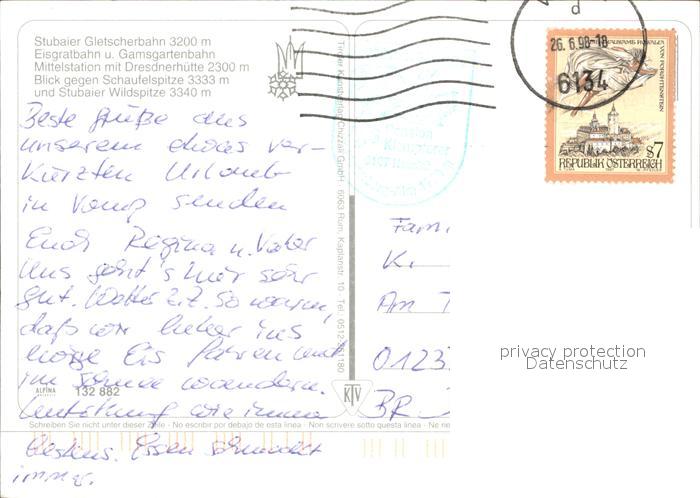 Stubaier Gletscherbahn 3200 m
Eisgratbahn u. Gamsgartenbahn
Mittelstation mit Dresdnerhütte 2300 m
Blick gegen Schaufelspitze 3333 m
und Stubaier Wildspitze 3340 m
Beste Grüße aus
unserem etwas ver-
kürzten Urlaub
in Vomp senden
Euch Regina u. Vater
Uns geht's hier sehr
gut. Wetter z.Z. so warm,
daß wir lieber ins
Eis fahren und
im Schnee wandern.
wie immer
bestens. Essen schmeckt
immer.
ALPINA
132 882
KTV
Schreiben Sie nicht unter dieser Zeile · No escribir por debajo de esta linea · Non scrivere sotto questa linea · Ne
Tiroler Kunstverlag Chizzali GmbH · 6063 Rum, Kaplanstr. 10 · Tel. 0512
Pension
d
26.6.98-18
6134
REPUBLIK ÖSTERREICH
s7
1997
Fam.
K.
Am T
0123
BR
privacy protection
Datenschutz